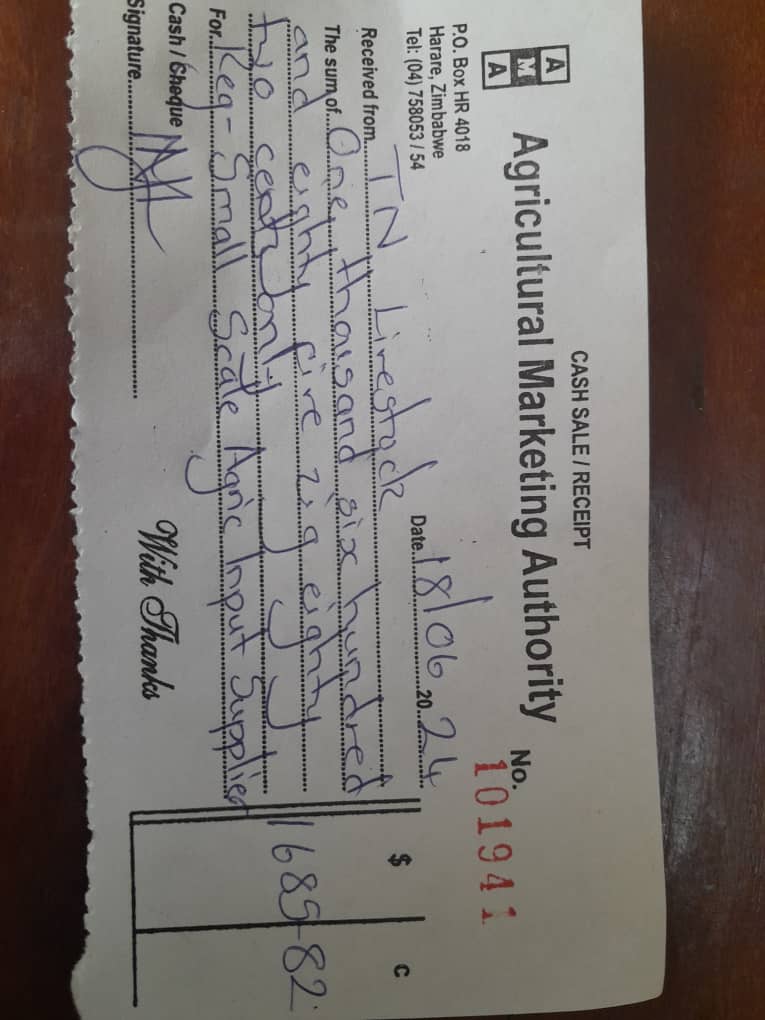 CASH SALE / RECEIPT
A
M
A
Agricultural Marketing Authority
No. 101941
P.O. Box HR 4018
Harare, Zimbabwe
Tel: (04) 758053 / 54
Date 18/06 20 24
Received from TN Livestock
The sum of One thousand six hundred
and eighty five zig eighty
two cents only
For Reg-Small Scale Agric Input Supplier
$ c
1685-82
Cash / Cheque
Signature
With Thanks